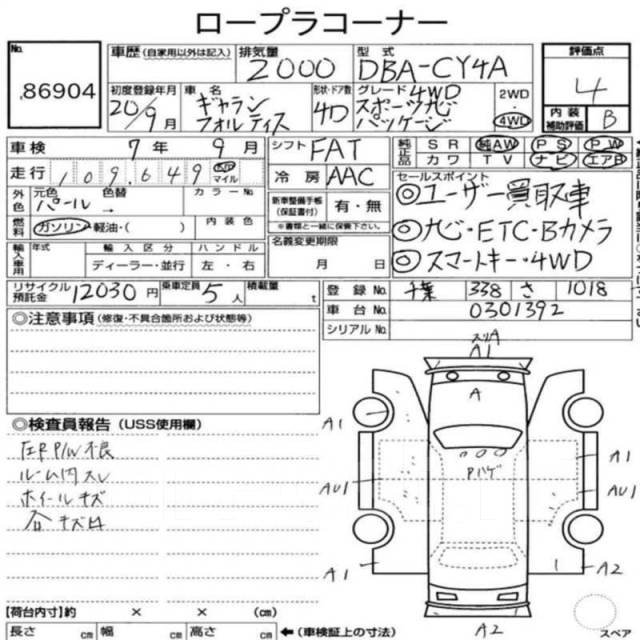 ロープラコーナー
No.
86904
車歴 (自家用以外は記入)
排気量
2000
型式
DBA-CY4A
評価点
4
内装
補助評価
B
初度登録年月
20/9月
車名
ギャラン
フォルティス
形状・ドア数
4D
グレード
4WD
スポーツナビ
パッケージ
2WD
・
4WD
車検
7年 9月
シフト
FAT
純正品
SR 純AW PS PW
カワ TV ナビ エアB
走行
109,649
km
マイル
冷房
AAC
セールスポイント
◎ユーザー買取車
◎ナビ・ETC・Bカメラ
◎スマートキー・4WD
外色
元色
色替
カラーNo.
パール →
新車整備手帳
(保証書付)
有・無
※書類と一緒に保管下さい。
燃料
ガソリン・軽油・( )
内装色
名義変更期限
月 日
輸入車用
年式
輸入区分
ハンドル
ディーラー・並行
左・右
リサイクル
預託金
12030円
乗車定員
5人
積載量
t
登録No.
千葉 338 さ 1018
車台No.
0301392
シリアルNo.
◎注意事項 (修復・不具合箇所および状態等)
◎検査員報告 (USS使用欄)
左R P/W不良
ルーム内スレ
ホイールキズ
各キズ凹
スリA
A1
A
A1
Pハゲ
A1
AU1
AU1
A1
A2
A2
スペア
【荷台内寸】約 × × (cm)
長さ cm 幅 cm 高さ cm ←(車検証上の寸法)